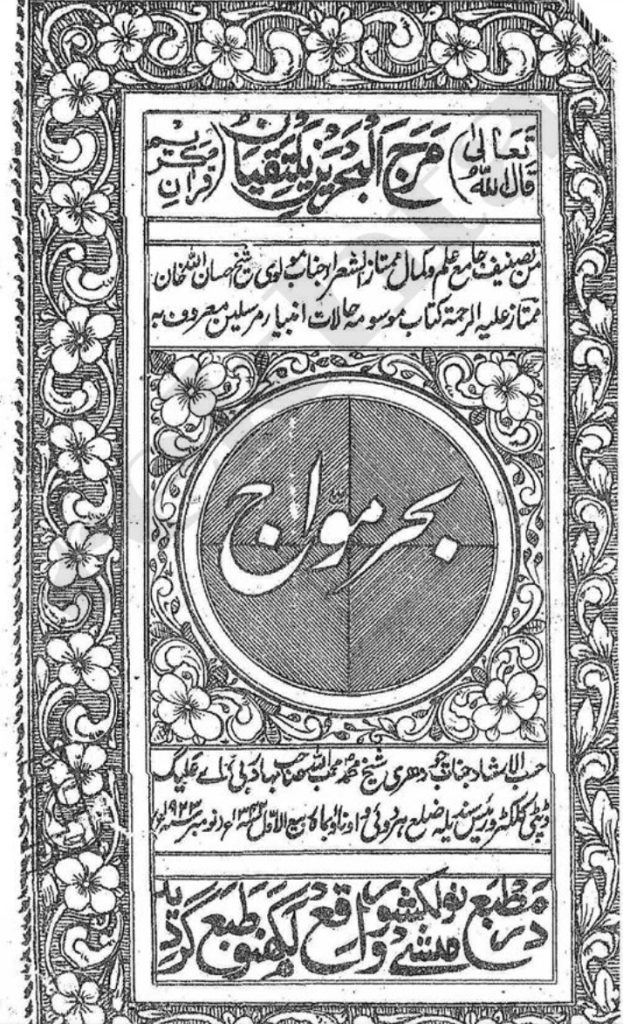 قال اللہ تعالیٰ (مَرَجَ الْبَحْرَیْنِ یَلْتَقِیَانِ) قرآن کریم
من تصنیف جامع علم و کمال ممتاز الشعراء جناب مولوی شیخ احسان اللہ خان
ممتاز علیہ الرحمۃ کتاب موسومہ حالات انبیاء مرسلین معروف بہ
بحر مواج
حسب الارشاد جناب چودھری شیخ محمد محب اللہ صاحب بہادر بی اے علیگ
ڈپٹی کلکٹر و رئیس سندیلہ ضلع ہردوئی و اوناؤ ماہ ربیع الاول ۱۳۴۲ھ نومبر ۱۹۲۳ء
در مطبع منشی نولکشور واقع لکھنؤ طبع گردید